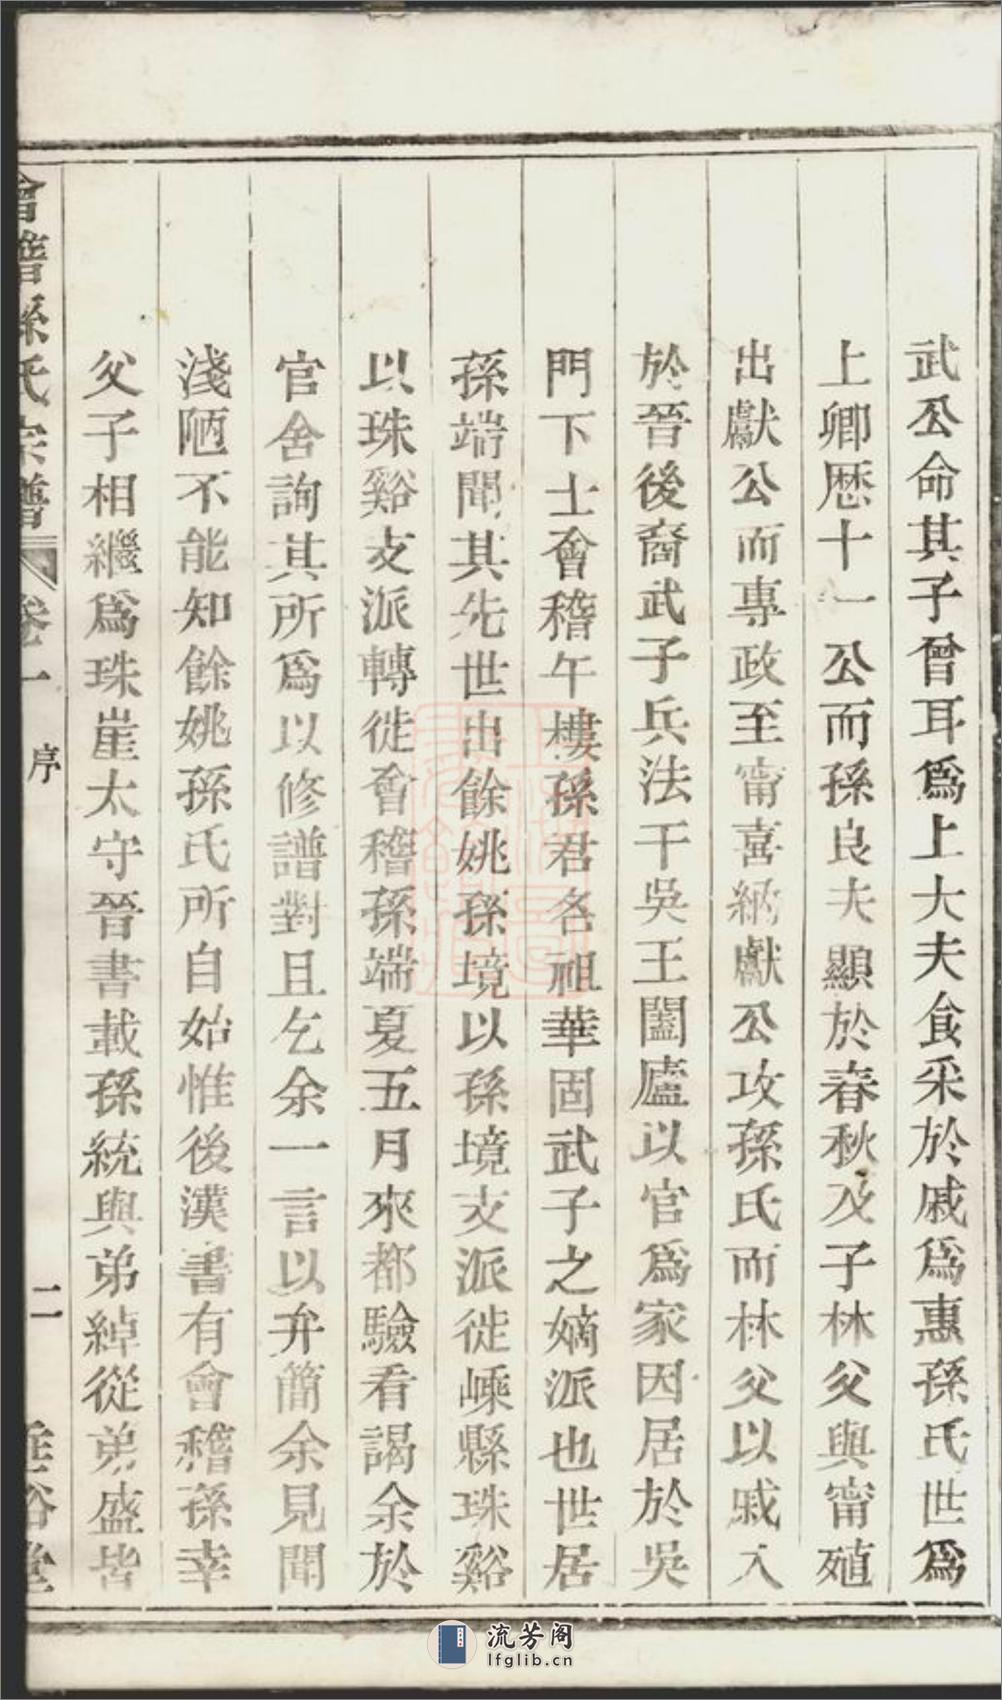 武公命其子曾耳爲上大夫食采於戚爲惠孫氏世爲
上卿歷十一公而孫良夫顯於春秋及子林父與甯殖
出獻公而專政至甯喜納獻公攻孫氏而林父以戚入
於晉後裔武子兵法干吳王闔廬以官爲家因居於吳
門下士會稽午樓孫君名祖華固武子之嫡派也世居
孫端聞其先世出餘姚孫境以孫境支派徙嵊縣珠谿
以珠谿支派轉徙會稽孫端夏五月來都驗看謁余於
官舍詢其所爲以修譜對且乞余一言以弁簡余見聞
淺陋不能知餘姚孫氏所自始惟後漢書有會稽孫幸
父子相繼爲珠崖太守晉書載孫統與弟綽從弟盛皆
會稽孫氏宗譜 卷一 序 二 垂裕堂
流芳阁
lfglib.cn